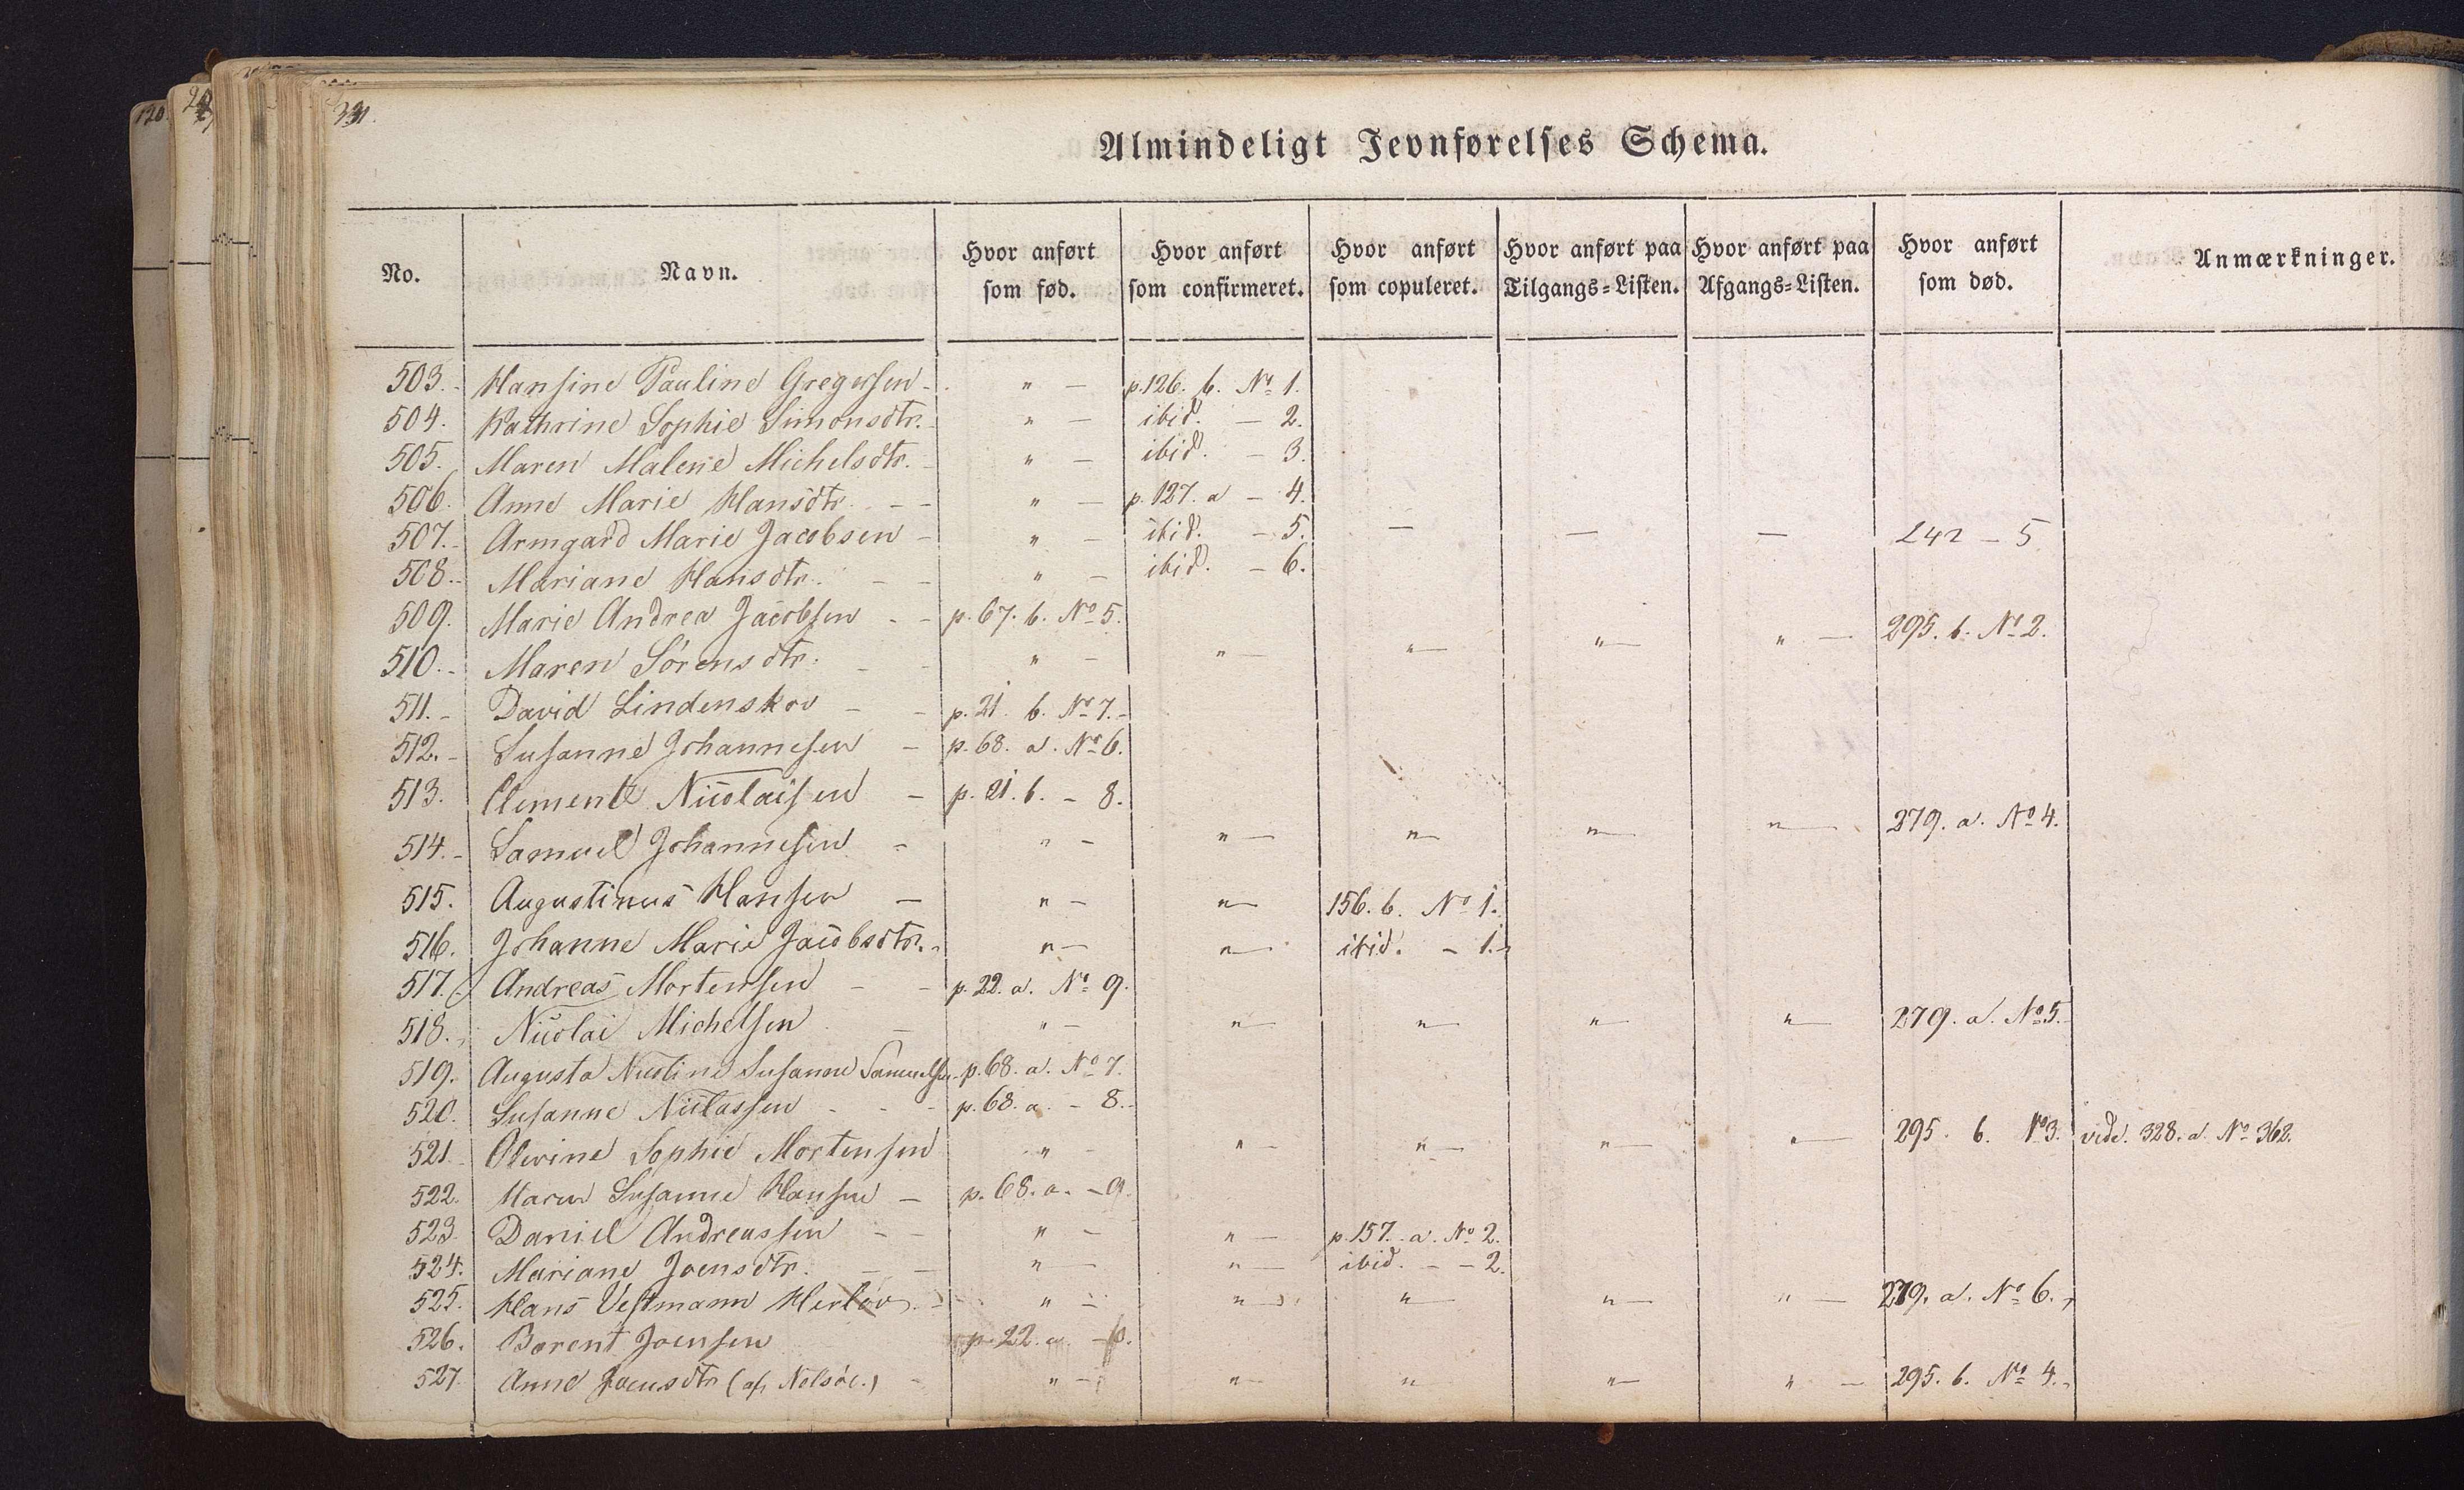 120.
331.
Almindeligt Jevnførelses Schema.
No. Navn. Hvor anført som fød. Hvor anført som confirmeret. Hvor anført som copuleret. Hvor anført paa Tilgangs=Listen. Hvor anført paa Afgangs=Listen. Hvor anført som død. Anmærkninger.
503. Hansine Pauline Gregersen - " — p. 126. b. No 1.
504. Kathrine Sophie Simonsdtr. " — ibid. — 2.
505. Maren Malene Michelsdtr. " — ibid. — 3.
506. Anne Marie Hansdtr. " — p. 127. a — 4.
507. Armgard Marie Jacobsen - " — ibid. — 5. — — — 242 — 5
508. Mariane Hansdtr. " — ibid. — 6.
509. Marie Andrea Jacobsen - p. 67. b. No 5.
510. Maren Sørensdtr. " — " — " — " — " — 295. b. No 2.
511. David Lindenskov — p. 21. b. No 7.
512. Susanne Johannesen — p. 68. a. No 6.
513. Clement Nicolaisen — p. 21. b. — 8.
514. Samuel Johannesen - " — " — " — " — " — 279. a. No 4.
515. Augustinus Hansen — " — " — 156. b. No 1.
516. Johanne Marie Jacobsdtr. " — " — ibid. — 1.
517. Andreas Mortensen - p. 22. a. No 9.
518. Nicolai Michelsen — " — " — " — " — " — 279. a. No 5.
519. Augusta Nicoline Susanne Samuelsen p. 68. a. No 7.
520. Susanne Niclassen - p. 68. a. — 8.
521. Olevine Sophie Mortensen " — " — " — " — " — 295. b. No 3. vide. 328. a. No 362.
522. Maren Susanne Hansen — p. 68. a. — 9.
523. Daniel Andreassen — " — " — p. 157. a. No 2.
524. Mariane Joensdtr. — " — " — ibid. — 2.
525. Hans Vestmann " — " — " — " — " — 279. a. No 6.
526. Barent Joensen p. 22. a. — 10.
527. Anne Joensdtr (af Nolsöe.) - " — " — " — " — " — 295. b. No 4.